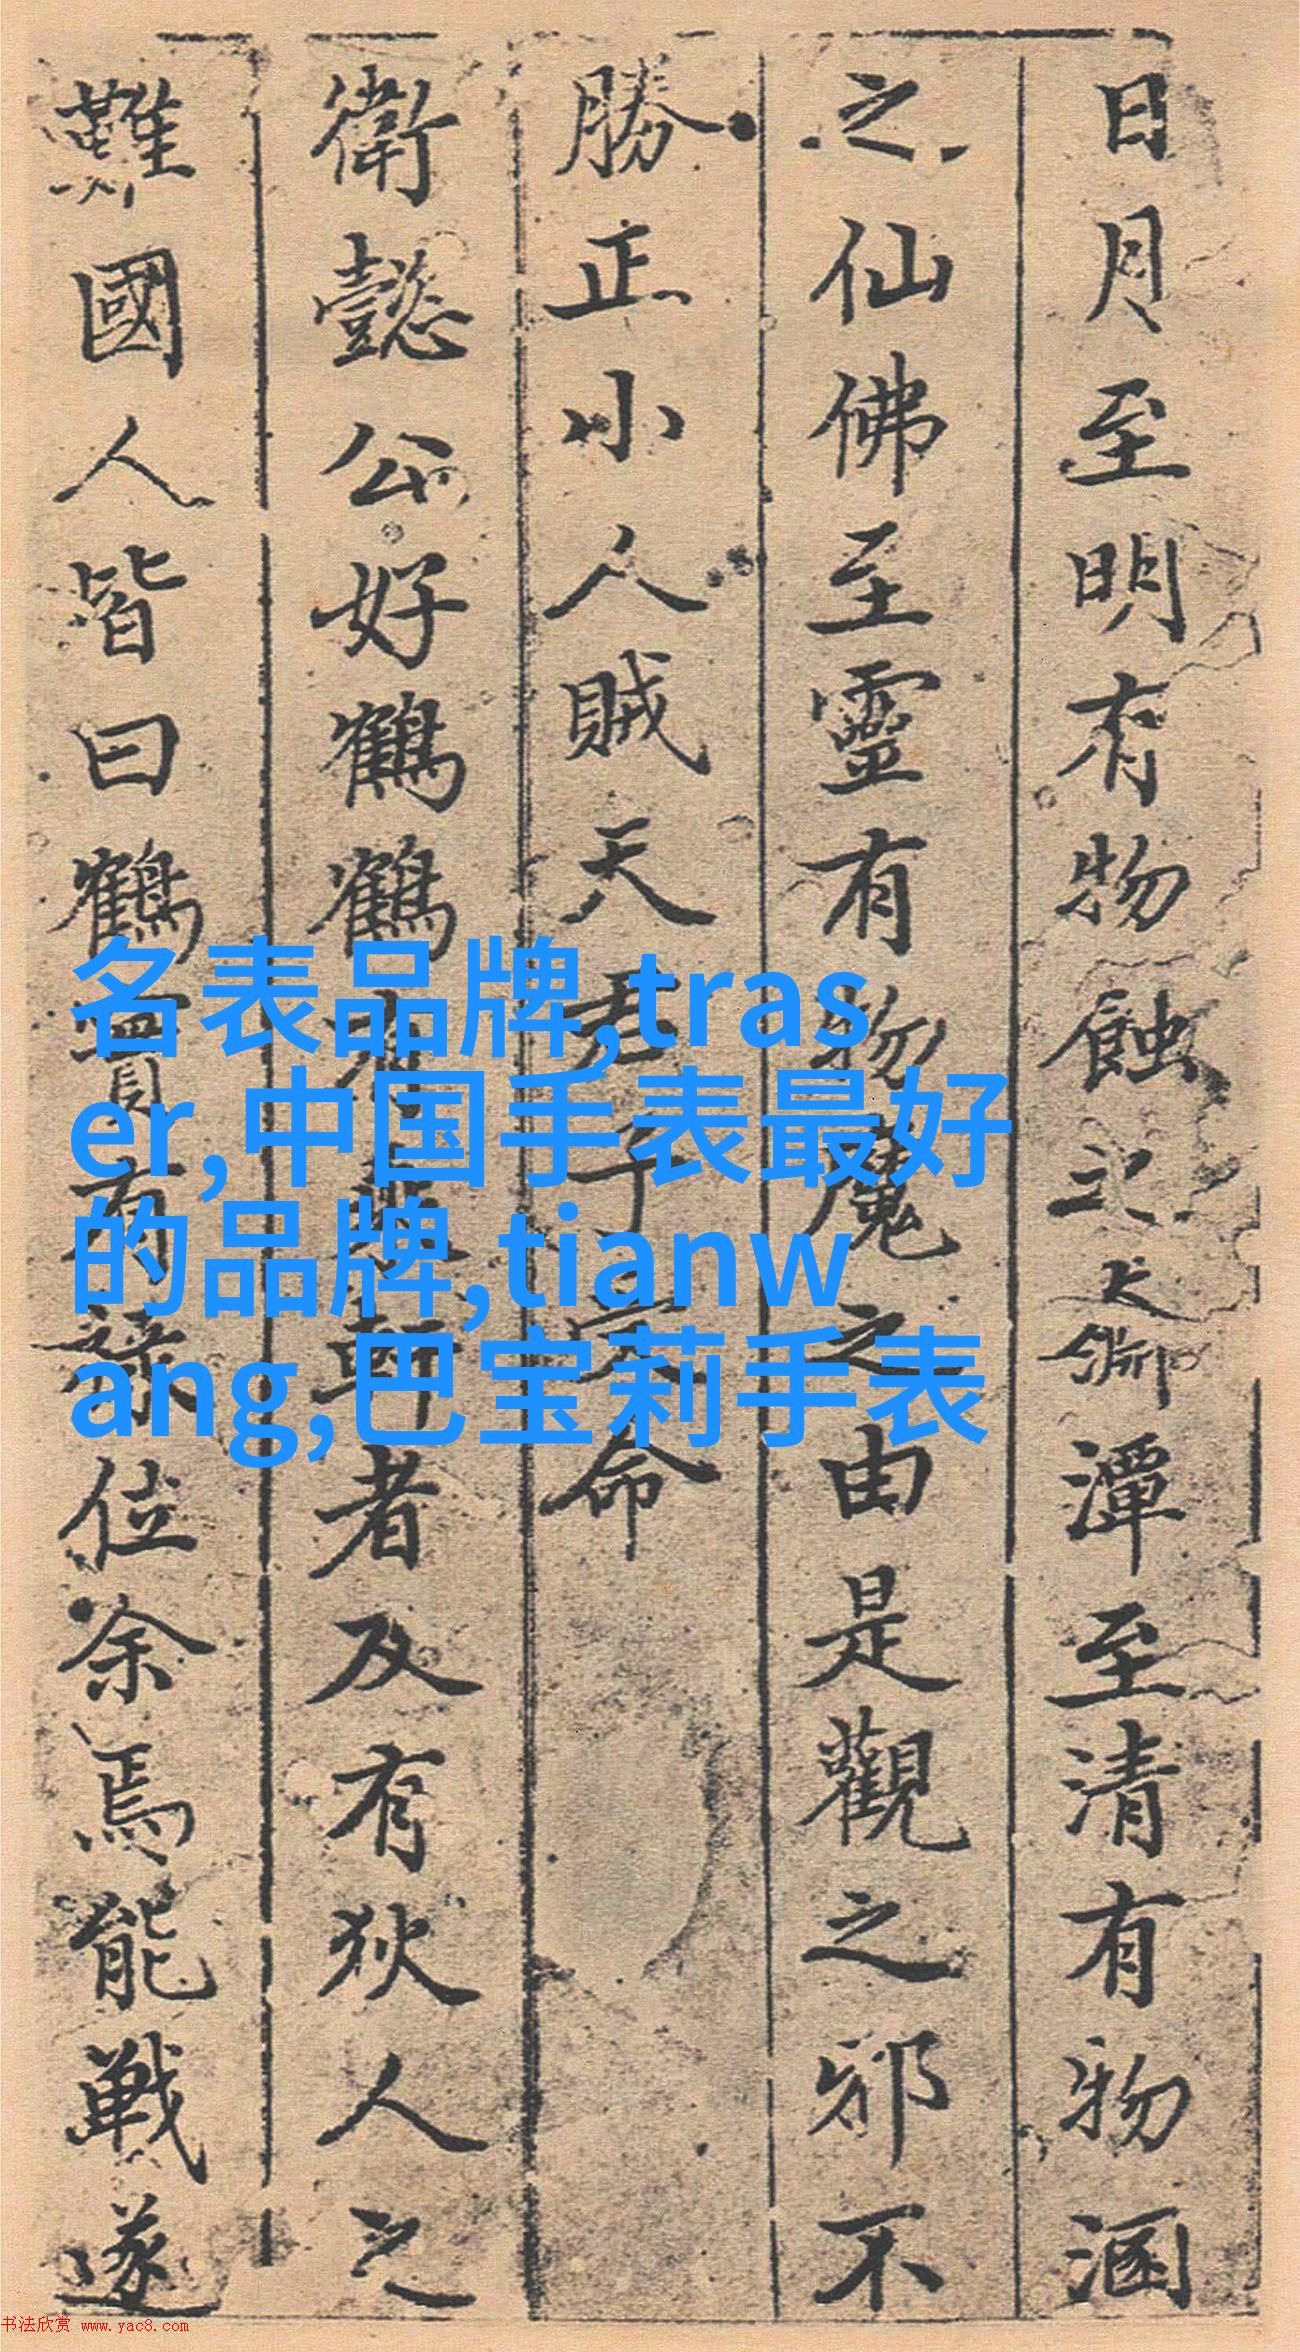 日月至明有物蝕之大
潭至清有物涵
之仙佛至靈有物魔之由是觀之邪不
勝正小人賊天君子安命
衛懿公好鶴鶴有乗軒者及有狄人之
難國人皆曰鶴實有祿位余焉能戰遂
名表品牌,tras
er,中国手表最好
的品牌,tianw
ang,巴宝莉手表
书法欣赏 www.yac8.com